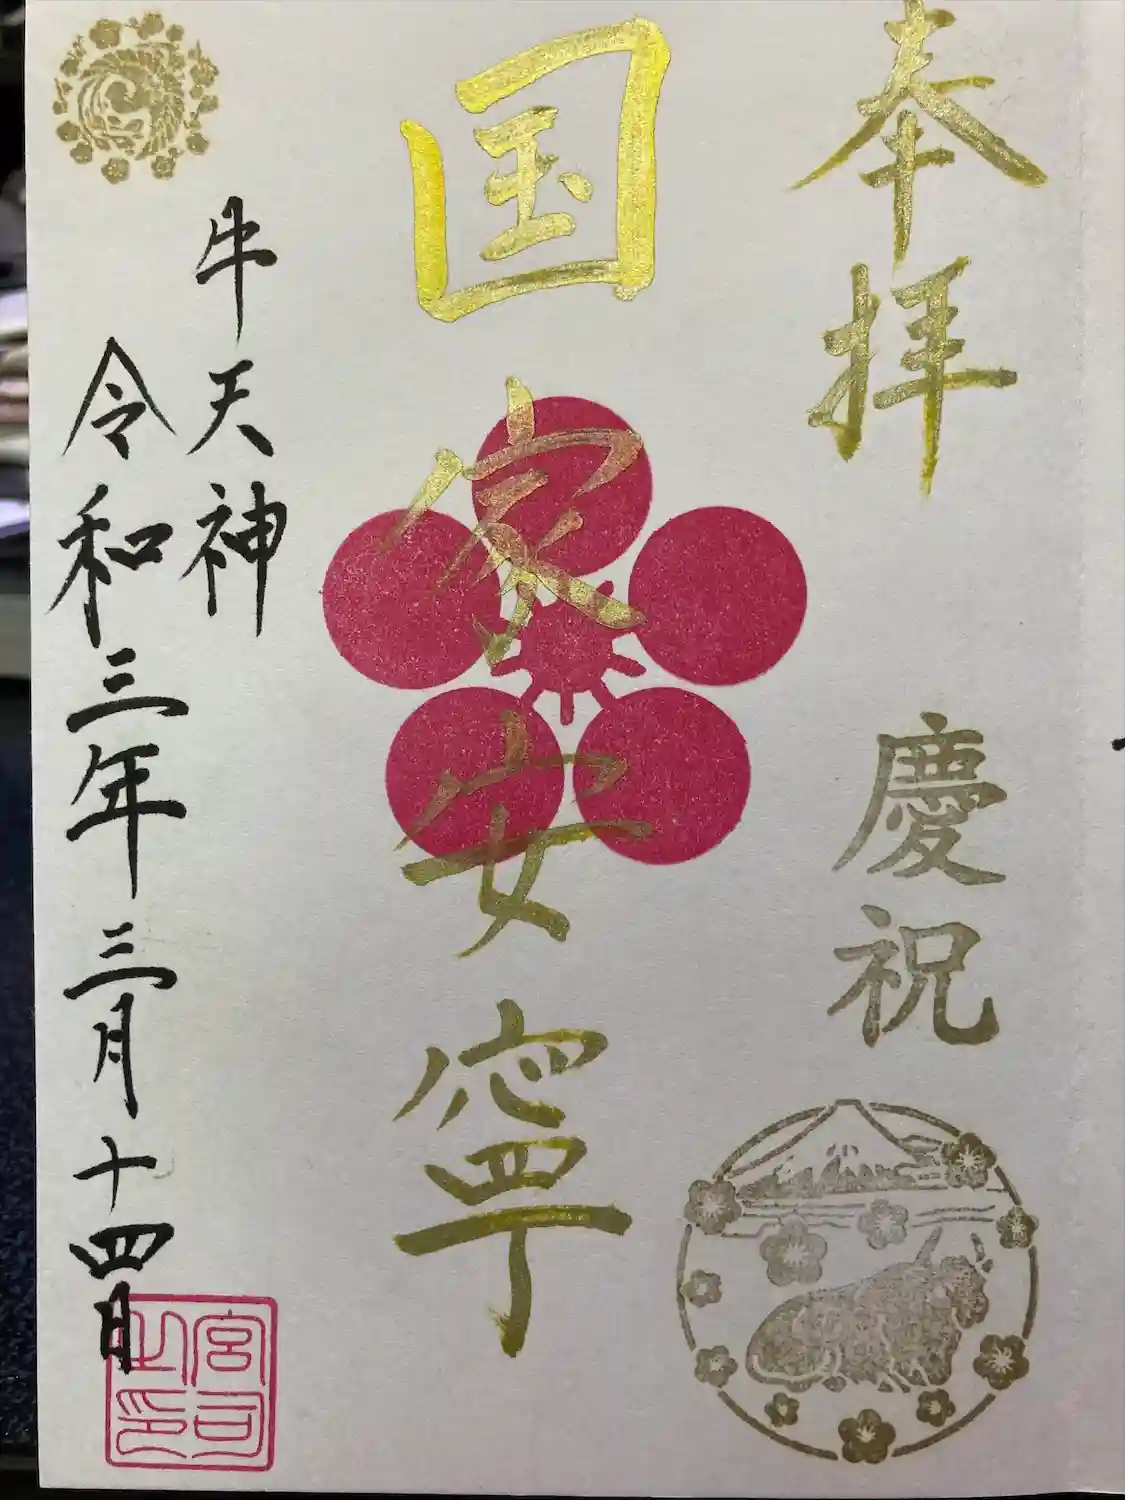 奉拝
慶祝
国家安寧
牛天神
令和三年三月十四日
宮司之印